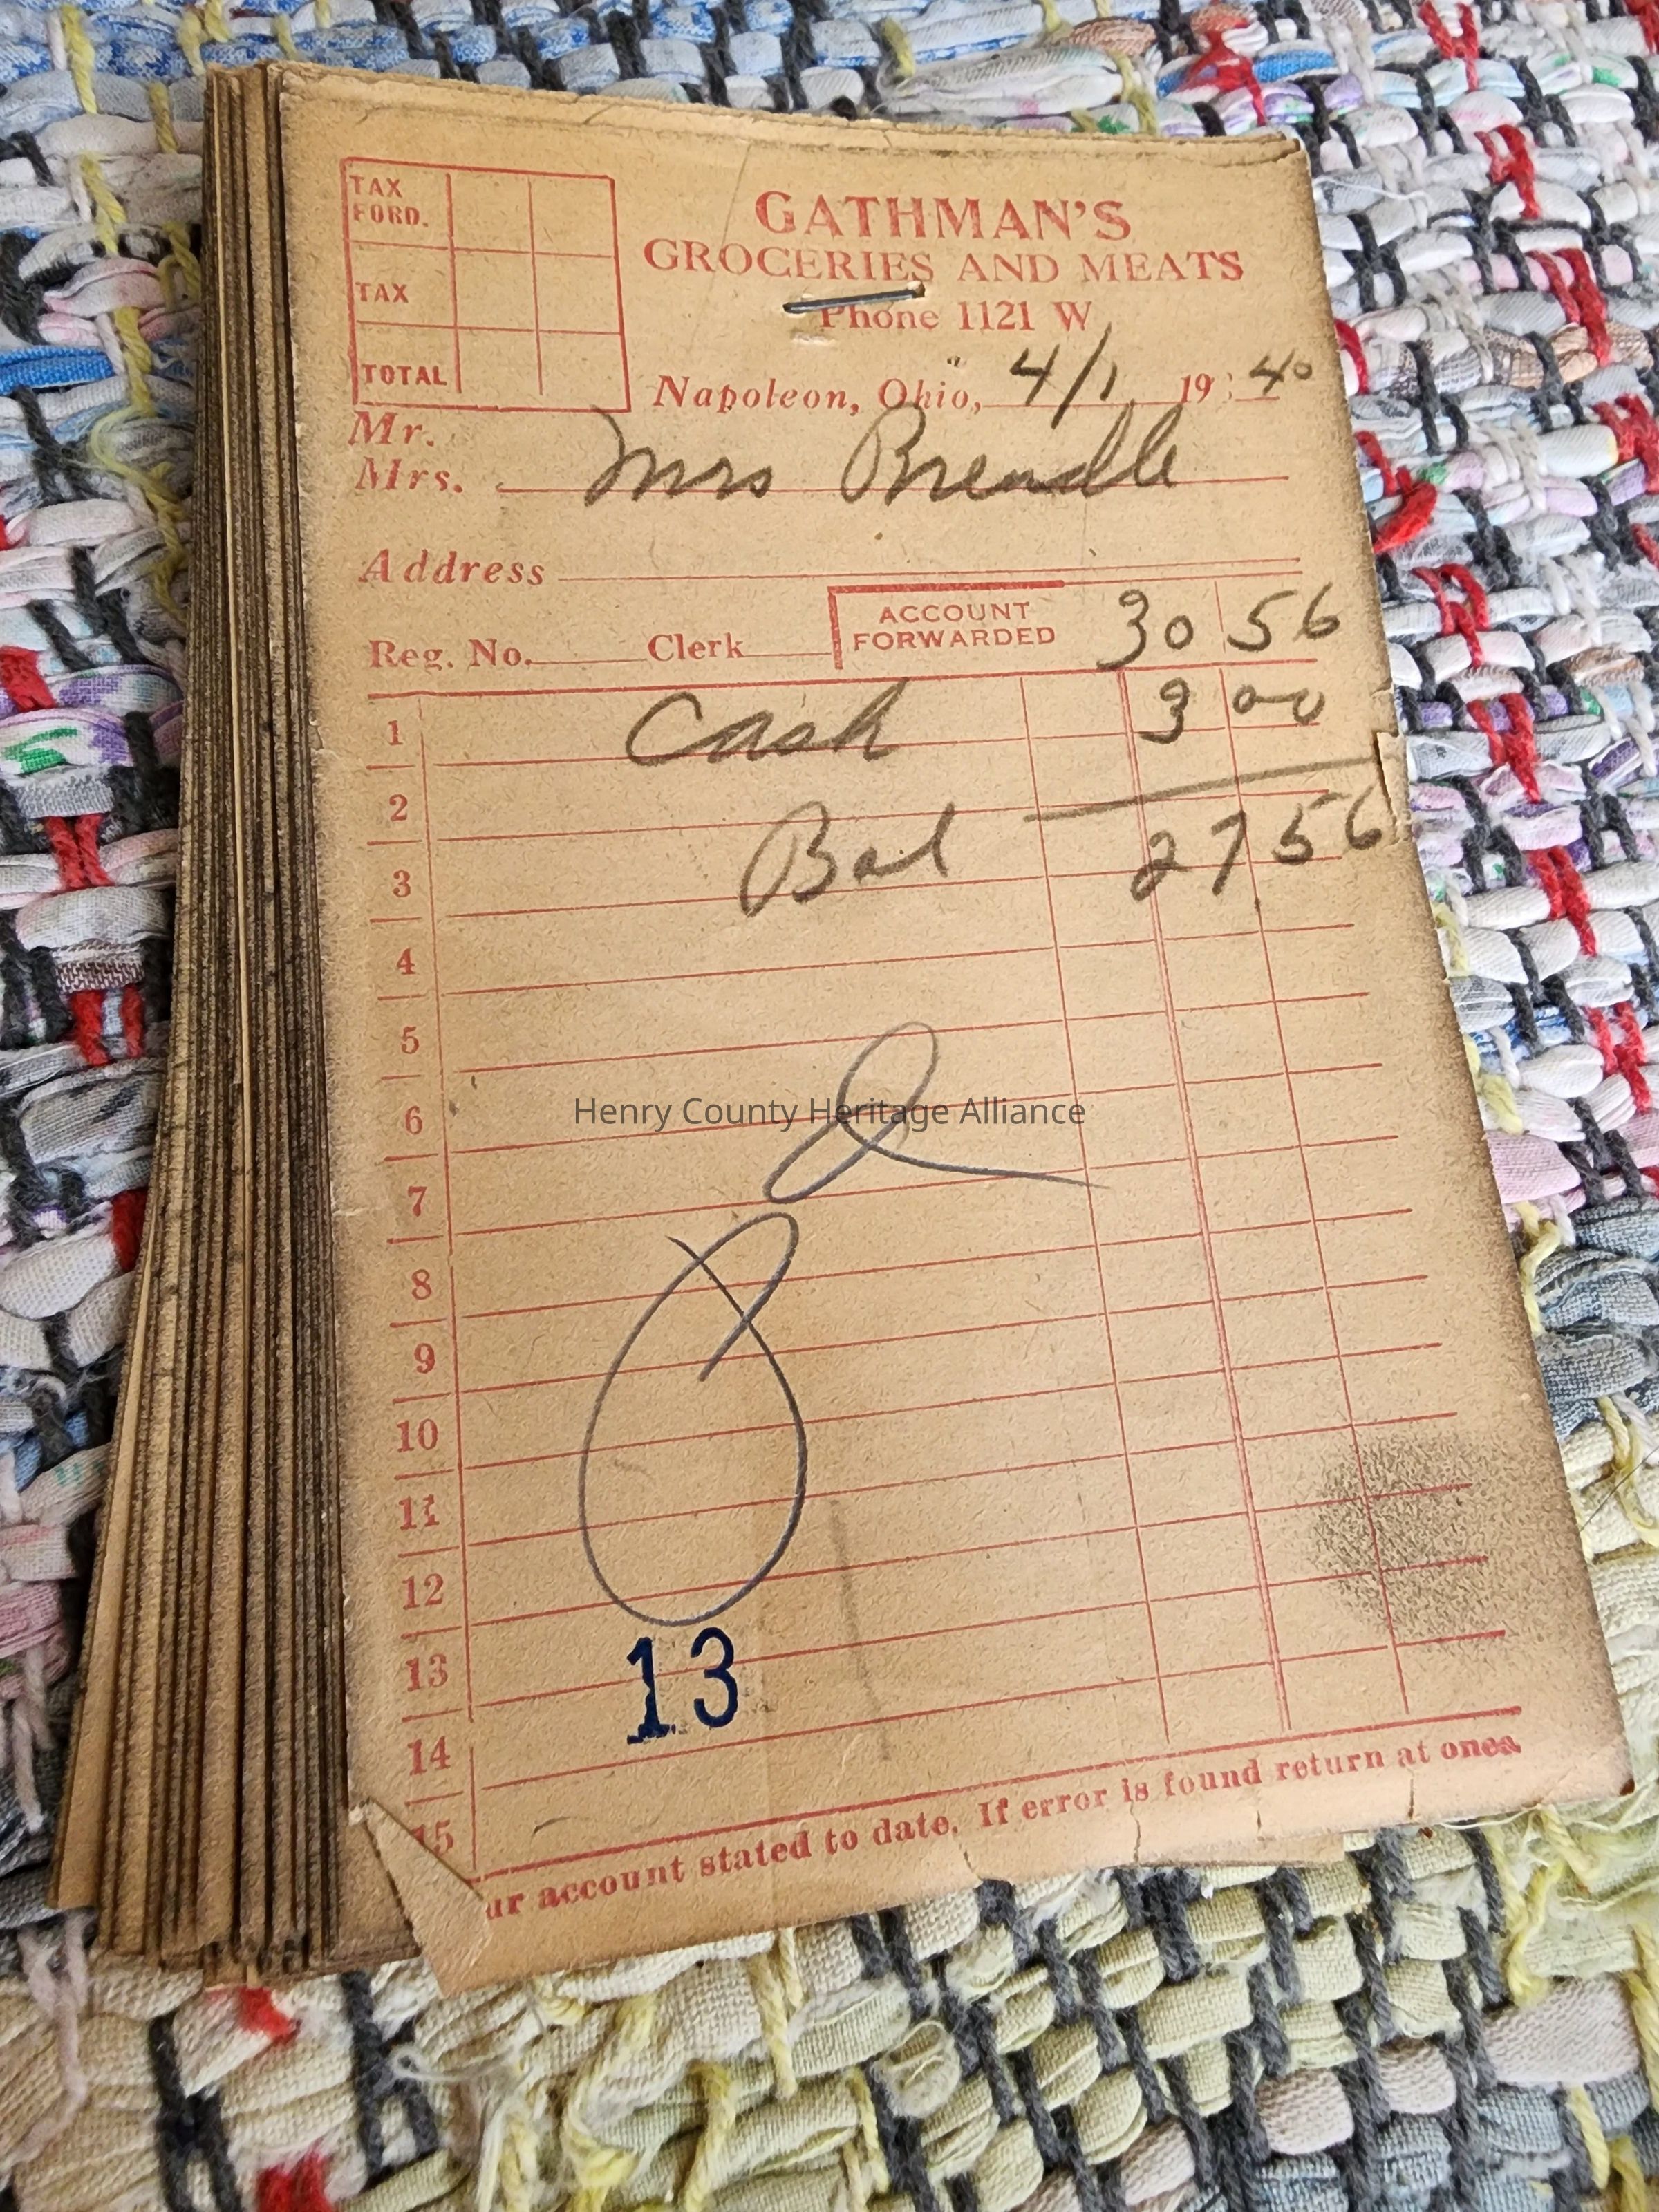 TAX FORD.
TAX
TOTAL
GATHMAN'S
GROCERIES AND MEATS
Phone 1121 W
Napoleon, Ohio, 4/1 1940
Mr.
Mrs. Mrs Brendle
Address
Reg. No. Clerk ACCOUNT FORWARDED 30 56
1 Cash 3 00
2
3 Bal 27 56
4
5
6
Henry County Heritage Alliance
7
8
9
10
11
12
13
13
14
15
ur account stated to date. If error is found return at once.